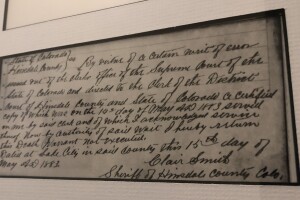 State of Colorado
Hinsdale County } ss By virtue of a certain writ of error
issued out of the clerks office of the Supreme Court of the
State of Colorado and directed to the Clerk of the District
Court of Hinsdale County and State of Colorado a certified
copy of which was on the 15th day of May AD 1883 served
on me by said clerk and of which I acknowledge service
Now by authority of said writ I hereby return
this Death Warrant not executed.
Dated at Lake City in said county this 15th day of
May AD 1883
Clair Smith
Sheriff of Hinsdale County Colo.